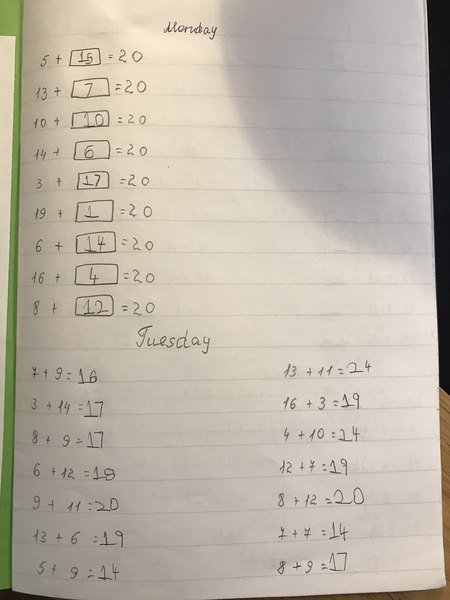 Monday
5 + 15 = 20
13 + 7 = 20
10 + 10 = 20
14 + 6 = 20
3 + 17 = 20
19 + 1 = 20
6 + 14 = 20
16 + 4 = 20
8 + 12 = 20
Tuesday
7 + 9 = 16
3 + 14 = 17
8 + 9 = 17
6 + 12 = 18
9 + 11 = 20
13 + 6 = 19
5 + 9 = 14
13 + 11 = 24
16 + 3 = 19
4 + 10 = 14
12 + 7 = 19
8 + 12 = 20
7 + 7 = 14
8 + 9 = 17